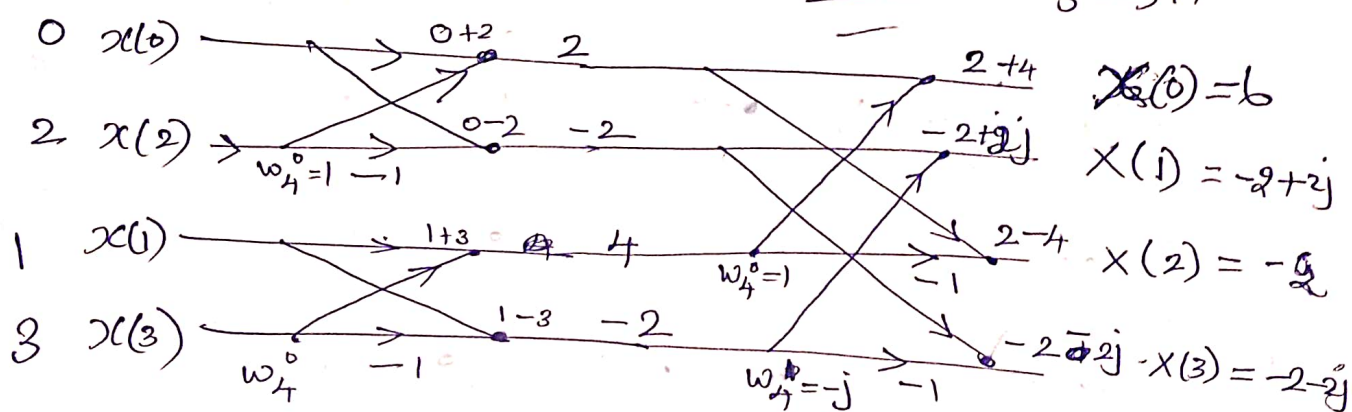 0 x(0) 0+2 2 2+4 X(0) = 6
2 x(2) w₄⁰=1 -1 0-2 -2 -2+2j X(1) = -2+2j
1 x(1) 1+3 4 w₄⁰=1 -1 2-4 X(2) = -2
3 x(3) w₄⁰ -1 1-3 -2 w₄¹=-j -1 -2-2j X(3) = -2-2j